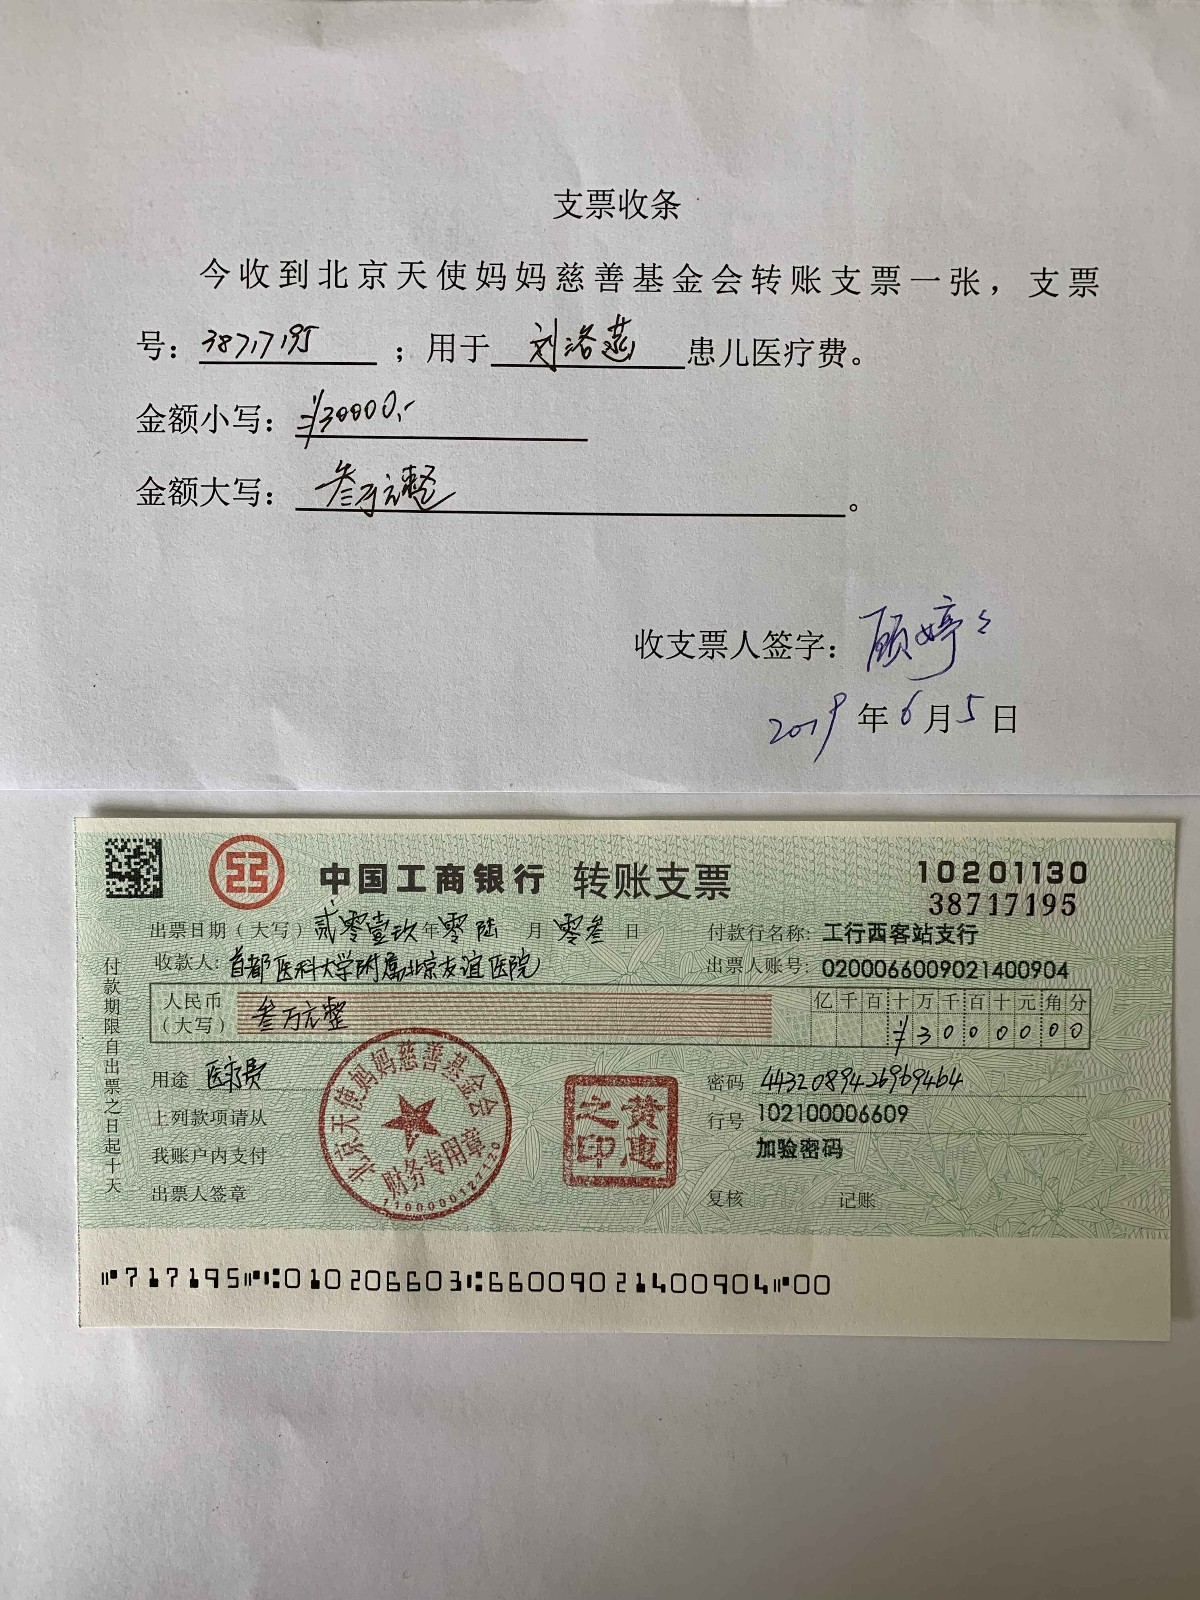 支票收条
今收到北京天使妈妈慈善基金会转账支票一张，支票
号：38717195；用于 刘洛燕 患儿医疗费。
金额小写：¥30000.-
金额大写：叁万元整。
收支票人签字：顾婷婷
2019年6月5日
中国工商银行 转账支票 10201130
38717195
出票日期（大写）贰零壹玖年零陆月零叁日 付款行名称：工行西客站支行
收款人：首都医科大学附属北京友谊医院 出票人账号：0200066009021400904
人民币（大写）叁万元整 亿千百十万千百十元角分
¥3000000
用途 医疗费 密码 4432089426969464
上列款项请从 行号 102100006609
我账户内支付 加验密码
出票人签章 复核 记账
付款期限自出票之日起十天
北京天使妈妈慈善基金会
财务专用章
黄惠之印
⑈717195⑈⑆010206603⑆66009021400904⑈00